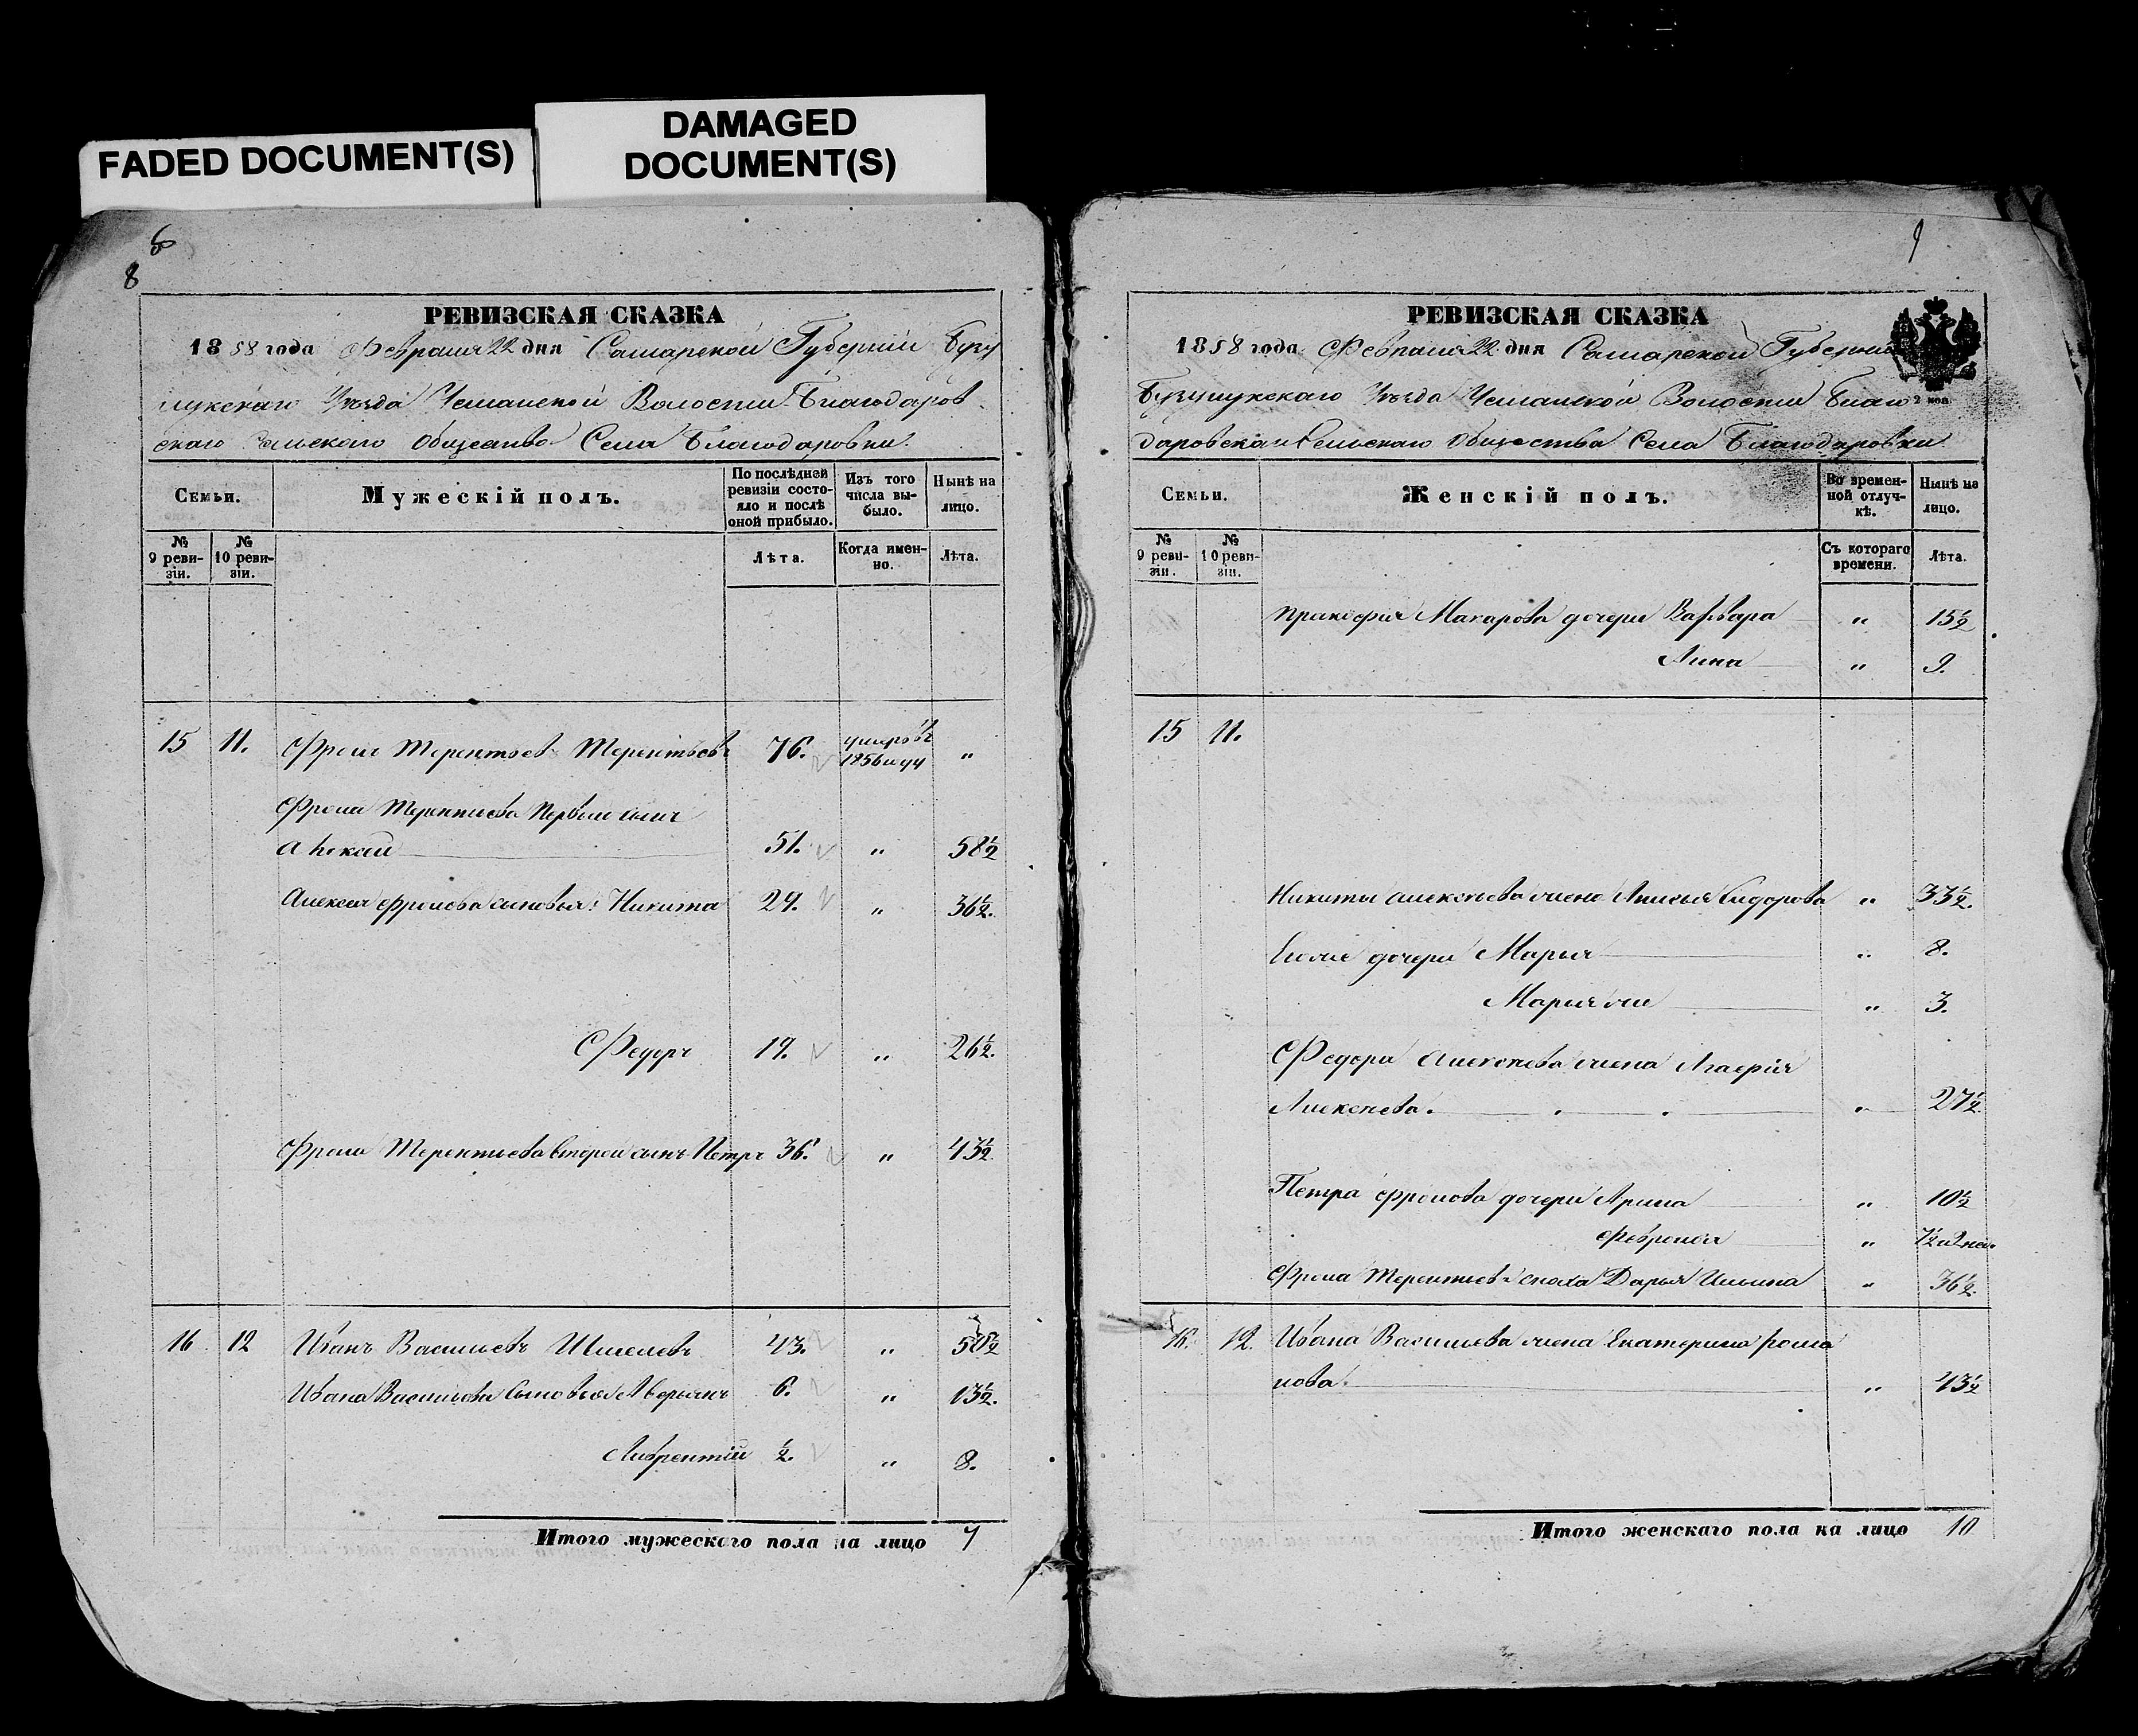 FADED DOCUMENT(S)
DAMAGED
DOCUMENT(S)
6
8
РЕВИЗСКАЯ СКАЗКА
1858 года Февраля 22 дня Самарской Губерніи Бугу
Уѣзда Волости Благодаров
скаго сельскаго общества Села Благодаровки.
Семьи.
Мужескій полъ.
По послѣдней ревизіи состо-яло и послѣ оной прибыло.
Изъ того числа вы-было.
Нынѣ на лицо.
№ 9 реви-зіи.
№ 10 реви-зіи.
Лѣта.
Когда имен-но.
Лѣта.
15 11. Фролъ Терентьевъ Терентьевъ 76. умеръ въ 1856 "
Фрола Терентьева Первый сынъ
51. " 58½
Алексея Фролова сыновья: Никита 29. " 36½.
Федоръ 19. " 26½.
Фрола Терентьева второй сынъ Петръ 36. " 43½
16 12 Иванъ Васильевъ 43. " 50½
Ивана Васильева Сыновья Аверьянъ 6. " 13½.
Лаврентій ½. " 8.
Итого мужескаго пола на лицо 7
9
РЕВИЗСКАЯ СКАЗКА
1858 года Февраля 22 дня Самарской Губерніи
Уѣзда Волости Благо
2 коп.
даровскаго Сельскаго общества Села Благодаровки
Семьи.
Женскій полъ.
Во времен-ной отлуч-кѣ.
Нынѣ на лицо.
№ 9 реви-зіи.
№ 10 реви-зіи.
Съ котораго времени.
Лѣта.
Макарова дочери Варвара " 15½
Анна " 9.
15 11.
Никиты Алексѣева жена Анисья Сидорова " 33½.
дочери Марья " 8.
" 3.
Федора Алексѣева жена Агафія
Алексѣева. " 27½.
Петра Фролова дочери Арина " 10½
Февронья "
Фрола Терентьева сноха Дарья Ильина " 36½.
16. 12. Ивана Васильева жена Екатерина Рома
нова. " 43½
Итого женскаго пола на лицо 10